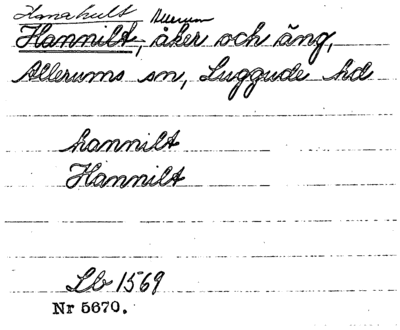 Hanahult Allerum
Hannilt, åker och äng,
Allerums sn, Luggude hd
hannilt
Hannilt
Lb 1569
Nr 5670.